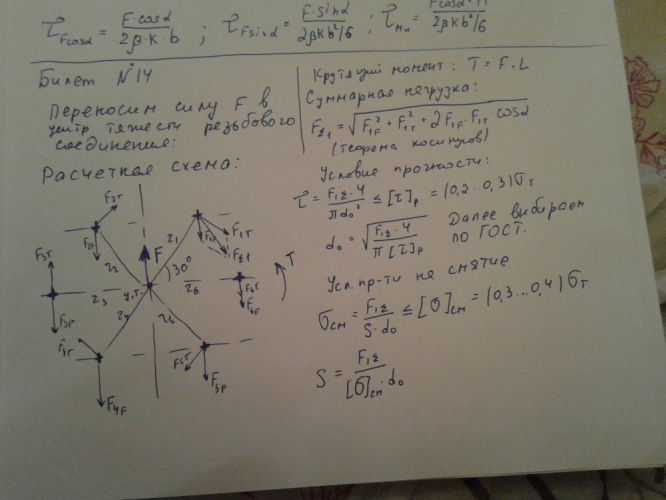 τ_Fcosα = F·cosα / 2β·K·b ; τ_Fsinα = F·sinα / 2βKb²/6 ; τ_Mи = Fcosα·H / 2βKb²/6
Билет №14
Переносим силу F в
центр тяжести резьбового
соединения:
Расчетная схема:
F₂τ
F₂F
r₂
r₁
F₁F
F₁τ
F_Σ1
F
30°
T
F₃τ
r₃
ц.т.
r₆
F₆τ
F₆F
F₃F
r₄
r₅
F₄F
F₅τ
F₅F
Крутящий момент: T = F·L
Суммарная нагрузка:
F_Σ1 = √(F₁F² + F₁τ² + 2F₁F·F₁τ·cosα)
(теорема косинусов)
Условие прочности:
τ = F₁Σ·4 / πd₀² ≤ [τ]р = (0,2...0,3)σт
d₀ = √(F₁Σ·4 / π[τ]р)
Далее выбираем
по ГОСТ.
Усл. пр-ти на смятие
σсм = F₁Σ / S·d₀ ≤ [σ]см = (0,3...0,4)σт
S = F₁Σ / [σ]см·d₀